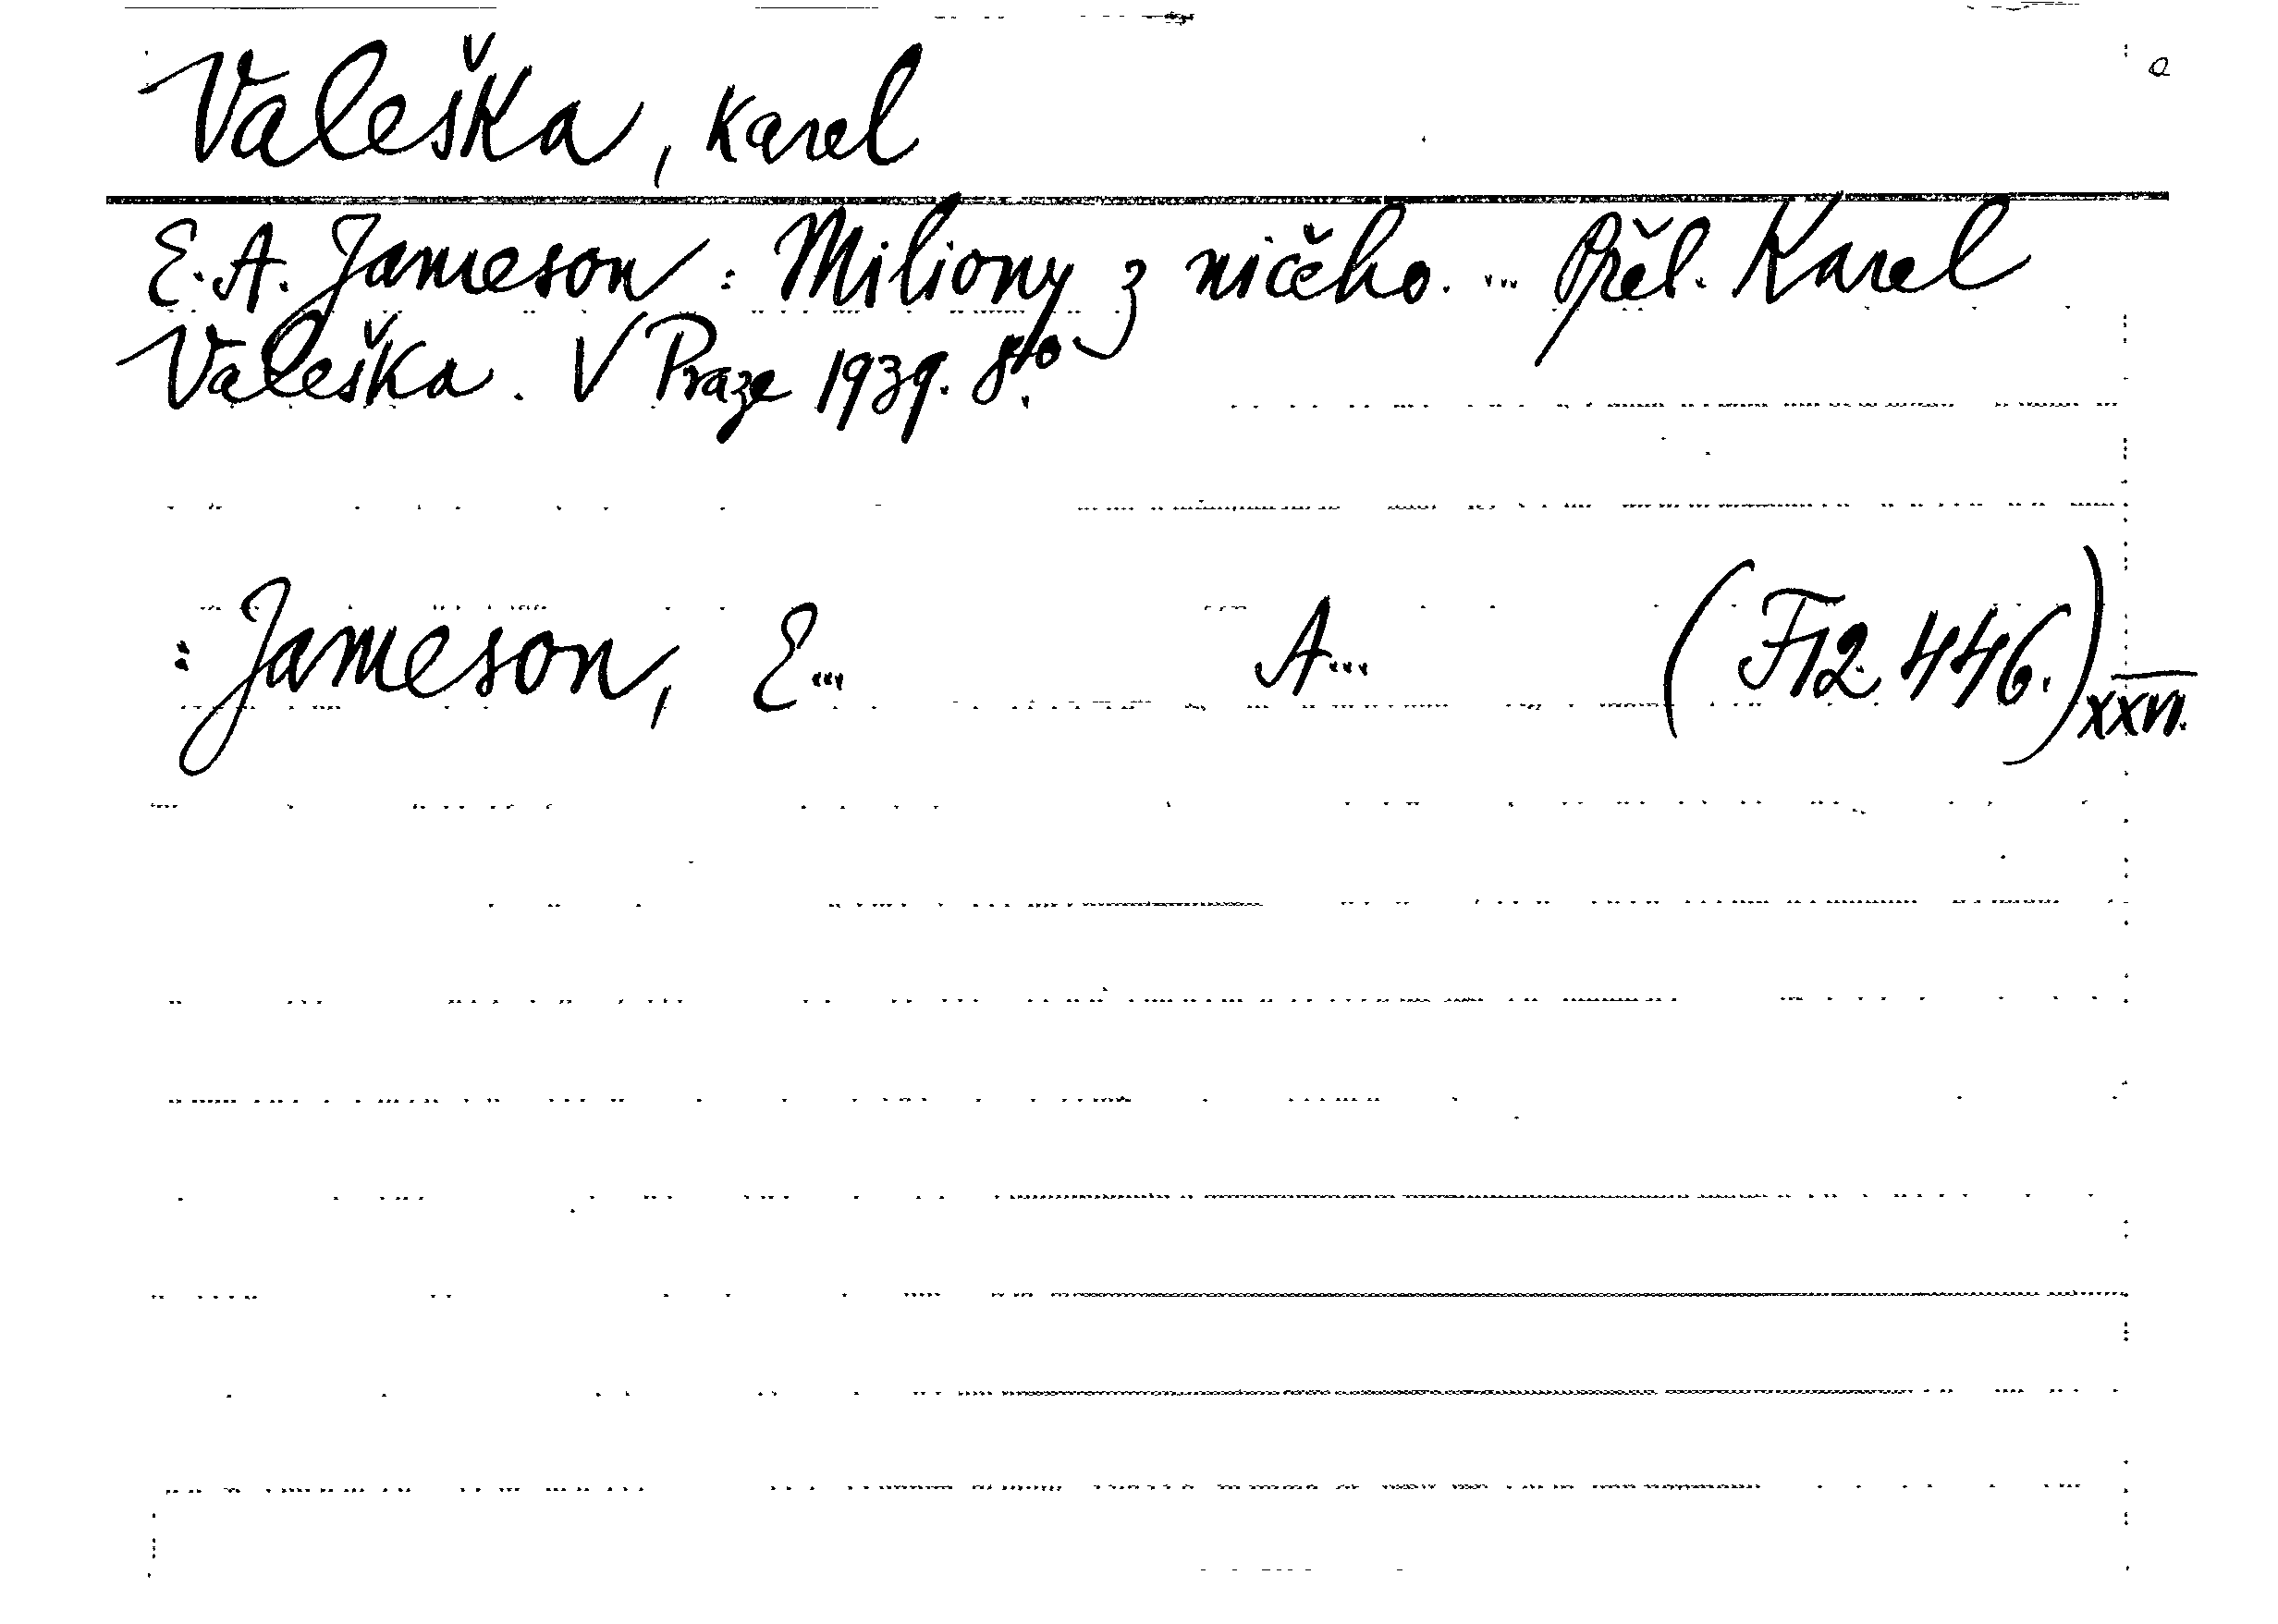 Valeška, Karel
E. A. Jameson: Miliony z ničeho. ... Přel. Karel
Valeška. V Praze 1939. 8to.
: Jameson, E... A... (F 12.446.)
XXVI.